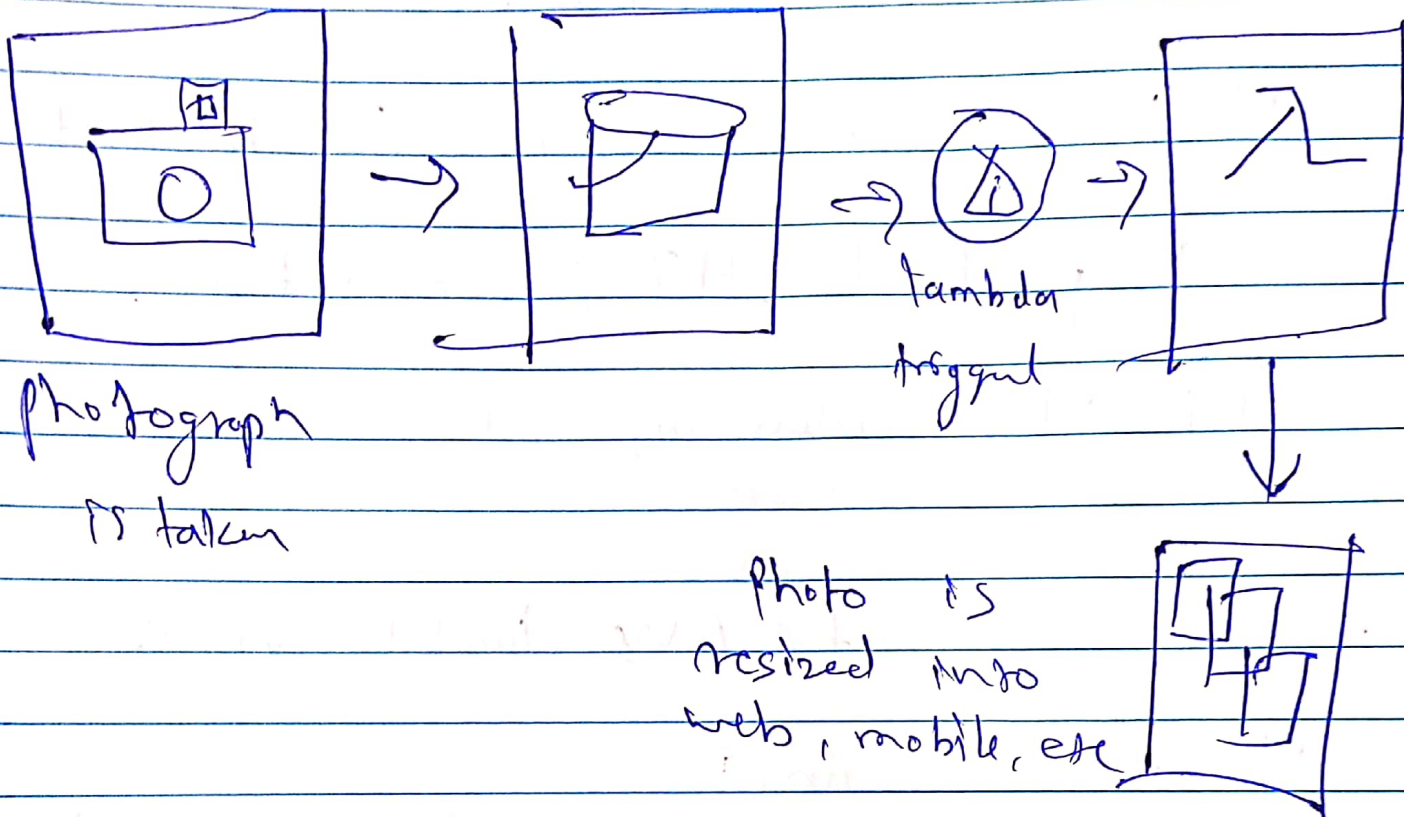 Lambda
triggered
Photograph
is taken
Photo is
resized into
web, mobile, etc